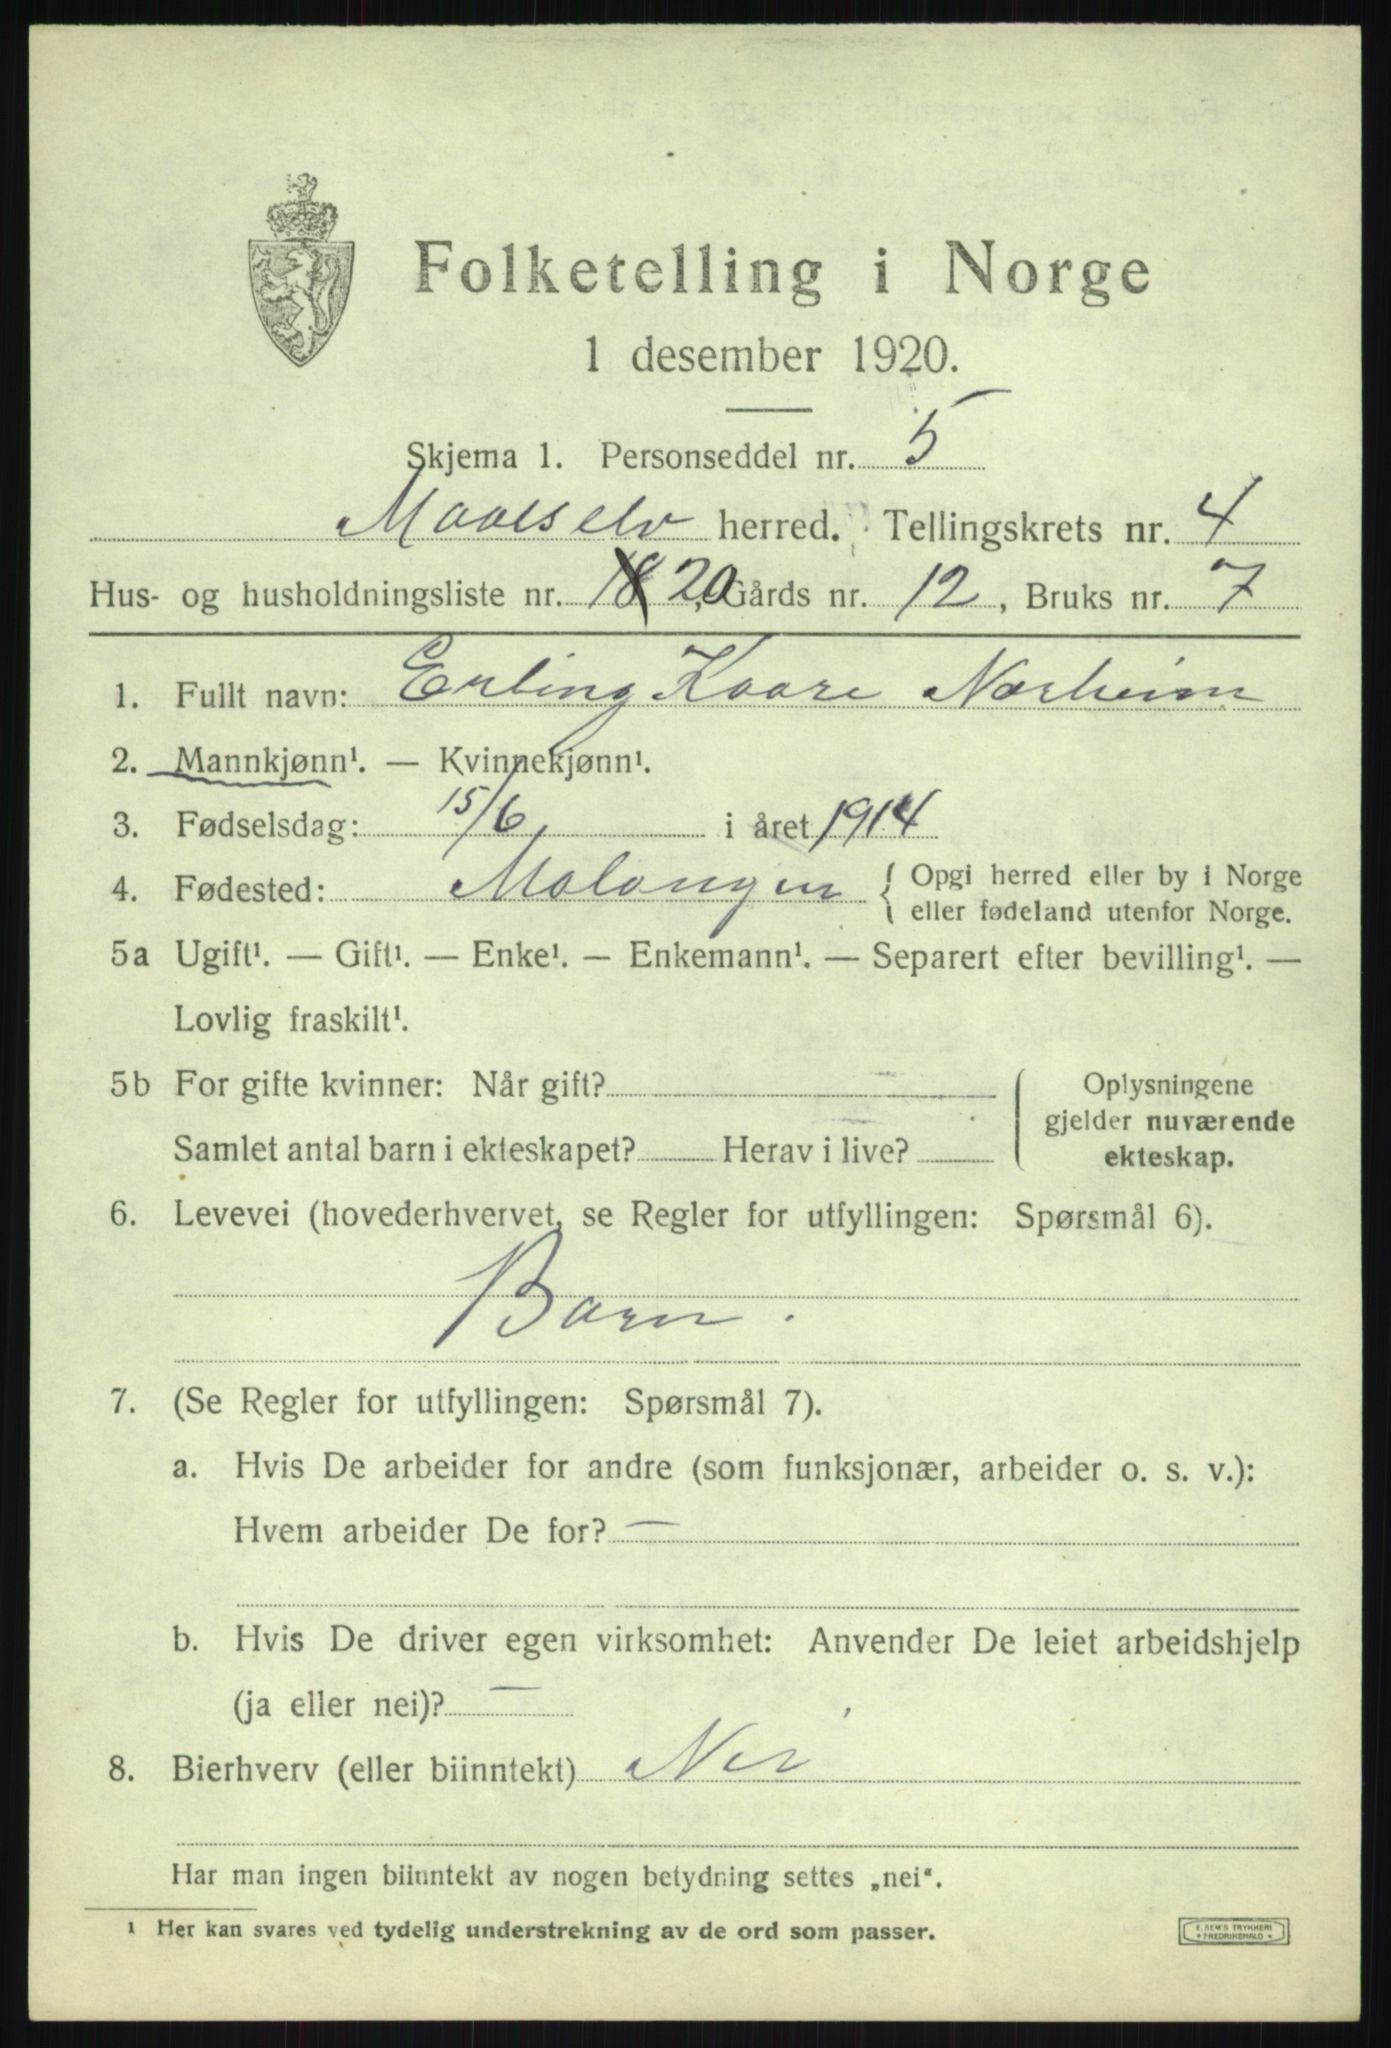 Folketelling i Norge
1 desember 1920.
Skjema 1. Personseddel nr. 5
Maalselv herred. Tellingskrets nr. 4
Hus- og husholdningsliste nr. 18 20, Gårds nr. 12, Bruks nr. 7
1. Fullt navn: Erling Kaare Norheim
2. Mannkjønn¹. — Kvinnekjønn¹.
3. Fødselsdag: 15/6 i året 1914
4. Fødested: Malangen { Opgi herred eller by i Norge
eller fødeland utenfor Norge.
5a Ugift¹. — Gift¹. — Enke¹. — Enkemann¹. — Separert efter bevilling¹. —
Lovlig fraskilt¹.
5b For gifte kvinner: Når gift? Oplysningene
gjelder nuværende
Samlet antal barn i ekteskapet? Herav i live? ekteskap.
6. Levevei (hovederhvervet, se Regler for utfyllingen: Spørsmål 6).
Barn.
7. (Se Regler for utfyllingen: Spørsmål 7).
a. Hvis De arbeider for andre (som funksjonær, arbeider o. s. v.):
Hvem arbeider De for? —
b. Hvis De driver egen virksomhet: Anvender De leiet arbeidshjelp
(ja eller nei)? —
8. Bierhverv (eller biinntekt) Nei
Har man ingen biinntekt av nogen betydning settes „nei“.
¹ Her kan svares ved tydelig understrekning av de ord som passer.
E. SEM'S TRYKKERI
FREDRIKSHALD